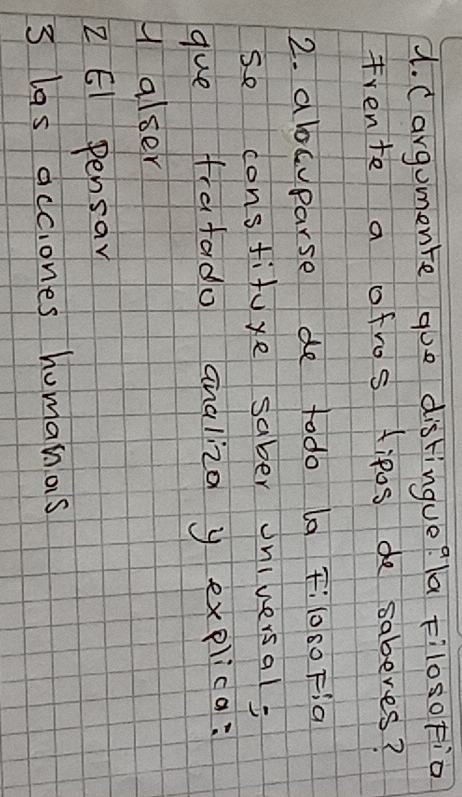 1. ¿ argumente que distingue la Filosofia
frente a otros tipos de saberes?
2. al ocuparse de todo la Filosofia
se constituye saber universal;
que tratado analiza y explica:
1 al ser
2 El pensar
3 las acciones humanas